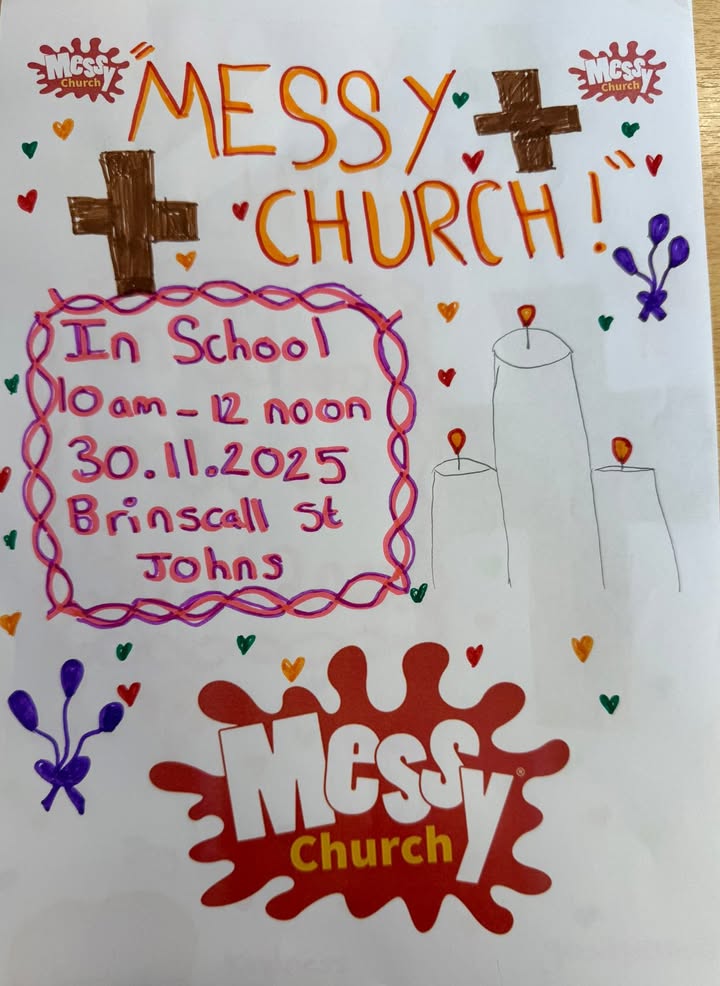 Messy
Church
Messy
Church
"MESSY
CHURCH!"
In School
10am - 12 noon
30.11.2025
Brinscall St
Johns
Messy®
Church